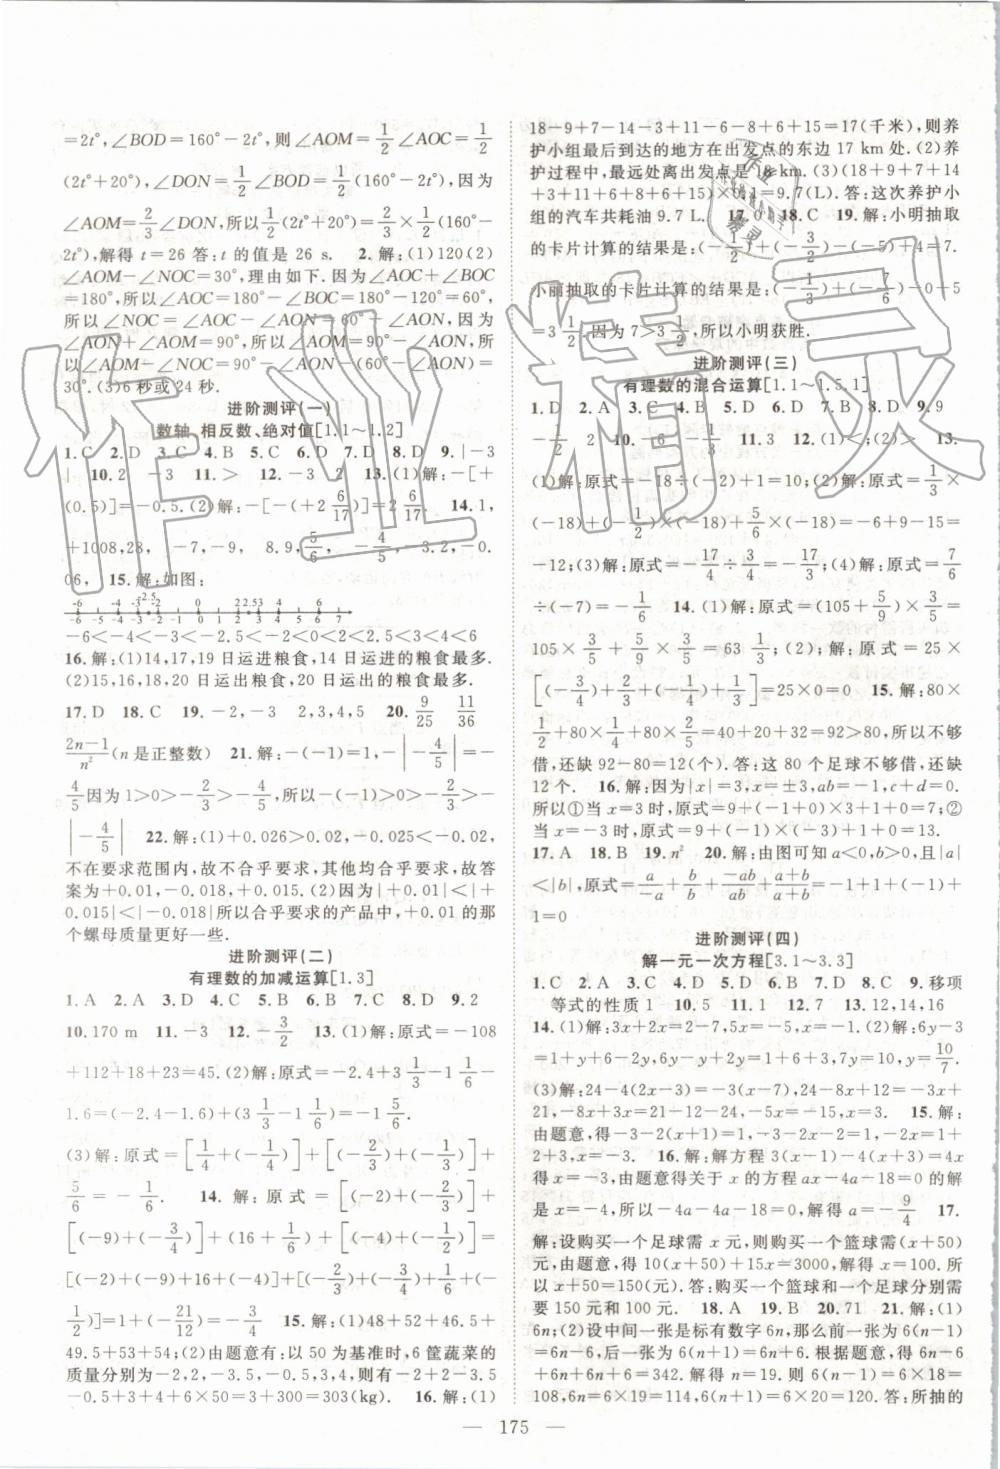 =2t°,∠BOD=160°-2t°,则∠AOM=1/2∠AOC=1/2
(2t°+20°),∠DON=1/2∠BOD=1/2(160°-2t°),因为
∠AOM=2/3∠DON,所以1/2(2t°+20°)=2/3×1/2(160°-
2t°),解得 t=26 答:t 的值是 26 s. 2.解:(1)120(2)
∠AOM-∠NOC=30°,理由如下:因为∠AOC+∠BOC
=180°,所以∠AOC=180°-∠BOC=180°-120°=60°,
所以∠NOC=∠AOC-∠AON=60°-∠AON,因为
∠AON+∠AOM=90°,所以∠AOM=90°-∠AON,
所以∠AOM-∠NOC=90°-∠AON-(60°-∠AON)=
30°.(3)6 秒或 24 秒.
进阶测评(一)
数轴、相反数、绝对值[1.1~1.2]
1.C 2.D 3.C 4.B 5.C 6.D 7.D 8.C 9.|-3
| 10.2 -3 11.> 12.-2 13.(1)解:-[+
(0.5)]=-0.5.(2)解:-[-(+2 6/17)]=2 6/17. 14.1,
+1008,28, -7,-9, 8.9,5/6, -4/5,-3.2,-0.
06, 15.解:如图:
-6 -4 -3 -2.5 -2 0 2 2.5 3 4 6
-6 -5 -4 -3 -2 -1 0 1 2 3 4 5 6 7
-6<-4<-3<-2.5<-2<0<2<2.5<3<4<6
16.解:(1)14,17,19 日运进粮食,14 日运进的粮食最多.
(2)15,16,18,20 日运出粮食,20 日运出的粮食最多.
17.D 18.C 19.-2,-3 2,3,4,5 20.9/25 11/36
2n-1/n²(n 是正整数) 21.解:-(-1)=1,-|-4/5|=-
4/5因为1>0>-2/3>-4/5,所以-(-1)>0>-2/3>-
|-4/5| 22.解:(1)+0.026>0.02,-0.025<-0.02,
不在要求范围内,故不合乎要求,其他均合乎要求,故答
案为+0.01,-0.018,+0.015;(2)因为|+0.01|<|+
0.015|<|-0.018|所以合乎要求的产品中,+0.01的那
个螺母质量更好一些.
进阶测评(二)
有理数的加减运算[1.3]
1.A 2.A 3.D 4.C 5.C 6.B 7.D 8.D 9.2
10.170 m 11.-3 12.-3/2 13.(1)解:原式=-108
+112+18+23=45.(2)解:原式=-2.4+3 1/3-1 1/6-
1.6=(-2.4-1.6)+(3 1/3-1 1/6)=-1 5/6.
(3)解:原式=[1/4+(-1/4)]+[(-2/3)+(-1/3)]+
5/6=-1/6. 14.解:原式=[(-2)+(-1/2)]+
[(-9)+(-3/4)]+(16+1/4)+[(-4)+(-3/4)]=
[(-2)+(-9)+16+(-4)]+[(-1/2)+(-3/4)+1/4+(-3/4)]=
1+(-21/12)=-3/4 15.解:(1)48+52+46.5+
49.5+53+54;(2)由题意有:以 50 为基准时,6 筐蔬菜的
质量分别为-2,2,-3.5,-0.5,3,4,所以有-2+2-3.5
-0.5+3+4+6×50=3+300=303(kg). 16.解:(1)
18-9+7-14-3+11-6-8+6+15=17(千米),则养
护小组最后到达的地方在出发点的东边 17 km 处.(2)养
护过程中,最远处离出发点是 18 km.(3)(18+9+7+14
+3+11+6+8+6+15)×0.1=9.7(L).答:这次养护小
组的汽车共耗油 9.7 L. 17.0 18.C 19.解:小明抽取
的卡片计算的结果是:(-1/2)-(-3/2)-(-5)+4=7.
小丽抽取的卡片计算的结果是:(-1/3)+(-7/6)-0+5
=3 1/2,因为 7>3 1/2,所以小明获胜.
进阶测评(三)
有理数的混合运算[1.1~1.5.1]
1.D 2.A 3.C 4.B 5.D 6.B 7.B 8.D 9.9
-1/2 2 10.-6 -11 11.3 12.(1)√ (2)√ 13.
(1)解:原式=-18÷(-2)+1=10;(2)解:原式=1/3×
(-18)+(-1/2)×(-18)+5/6×(-18)=-6+9-15=
-12;(3)解:原式=-17/4÷17/4=-1.(4)解:原式=7/6
÷(-7)=-1/6 14.(1)解:原式=(105+5/9)×3/5=
105×3/5+5/9×3/5=63 1/3;(2)解:原式=25×
[(-3/4)+(-2/4)+1/4]=25×0=0 15.解:80×
1/2+80×1/4+80×2/5=40+20+32=92>80,所以不够
借,还缺 92-80=12(个).答:这 80 个足球不够借,还缺
12 个. 16.解:因为|x|=3,x=±3,ab=-1,c+d=0.
所以①当 x=3 时,原式=9+(-1+0)×3+1+0=7;②
当 x=-3 时,原式=9+(-1)×(-3)+1+0=13.
17.A 18.B 19.n² 20.解:由图可知 a<0,b>0,且|a|
<|b|,原式=-a/a+b/b+-ab/-ab+a+b/a+b=-1+1+(-1)+
1=0
进阶测评(四)
解一元一次方程[3.1~3.3]
1.C 2.C 3.A 4.D 5.D 6.B 7.C 8.C 9.移项
等式的性质 1 10.5 11.1 12.7 13.12,14,16
14.(1)解:3x+2x=2-7,5x=-5,x=-1.(2)解:6y-3
=1+y+6,6y-y+2y=1+6+3,7y=10,y=10/7.
(3)解:24-4(2x-3)=-3(7x),24-8x+12=-3x+
21,-8x+3x=21-24-12,-5x=-15,x=3. 15.解:
由题意,得-3-2(x+1)=1,-3-2x-2=1,-2x=1+
2+3,x=-3. 16.解:解方程-1-4(x+3)=4x
得 x=-3,由题意得关于 x 的方程 ax-4a-18=0 的解
是 x=-4,所以-4a-4a-18=0,解得 a=-9/4 17.
解:设购买一个足球需 x 元,则购买一个篮球需(x+50)
元,由题意,得 10(x+50)+15x=3000,解得 x=100.所
以 x+50=150(元).答:购买一个篮球和一个足球分别需
要 150 元和 100 元. 18.A 19.B 20.71 21.解:(1)
6n;(2)设中间一张是标有数字6n,那么前一张为6(n-1)
=6n-6,后一张为6(n+1)=6n+6.根据题意,得6n-6
+6n+6n+6=342.解得 n=19.则6(n-1)=6×18=
108,6n=6×19=114,6(n+1)=6×20=120.答:所抽的
— 175 —
作业精灵